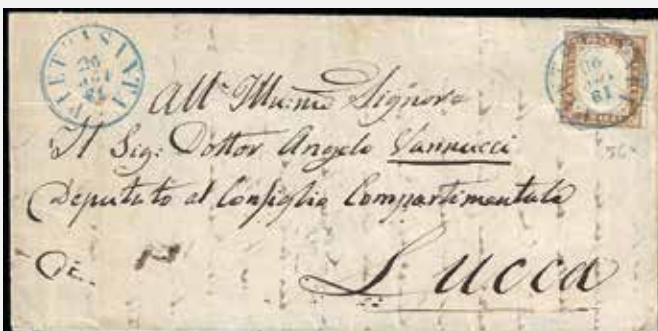 PIETRASANTA
26
61
All'Illu:mo Signore
Il Sig: Dottor Angelo Vannucci
Deputato al Consiglio Compartimentale
di
Lucca
61